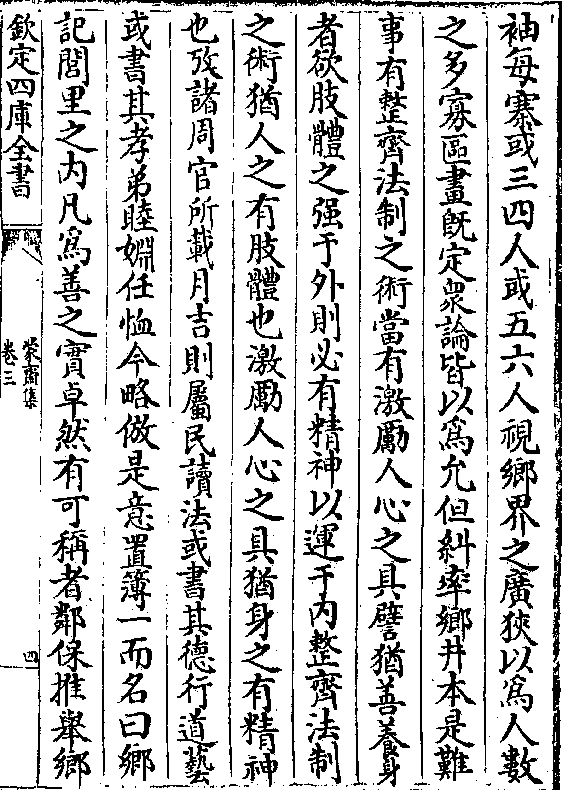 袖每寨或三四人或五六人視鄉界之廣狹以爲人數
之多寡區畫旣定衆論皆以爲允但糾率鄉井本是難
事有整齊法制之術當有激厲人心之具譬猶善養身
者欲肢體之强于外則必有精神以運于内整齊法制
之術猶人之有肢體也激厲人心之具猶身之有精神
也攷諸周官所載月吉則屬民讀法或書其德行道藝
或書其孝弟睦婣任恤今略倣是意置簿一而名曰鄉
記閭里之内凡爲善之實卓然有可稱者鄰保推舉鄉
欽定四庫全書
蒙齋集
卷三
四